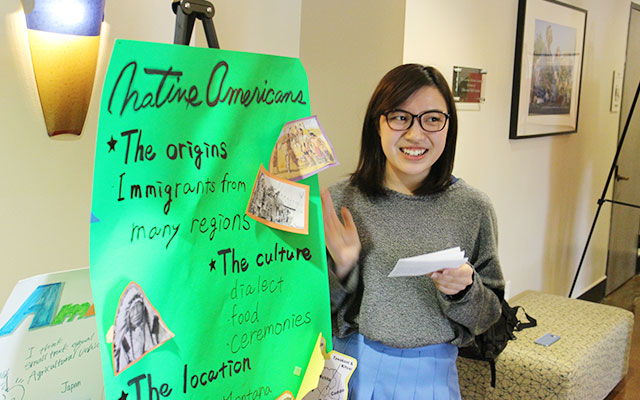 Native Americans
★ The origins
Immigrants from
many regions
★ The culture
dialect
food
ceremonies
★ The location
Montana
I think
small that equal
Agricultural
Japan